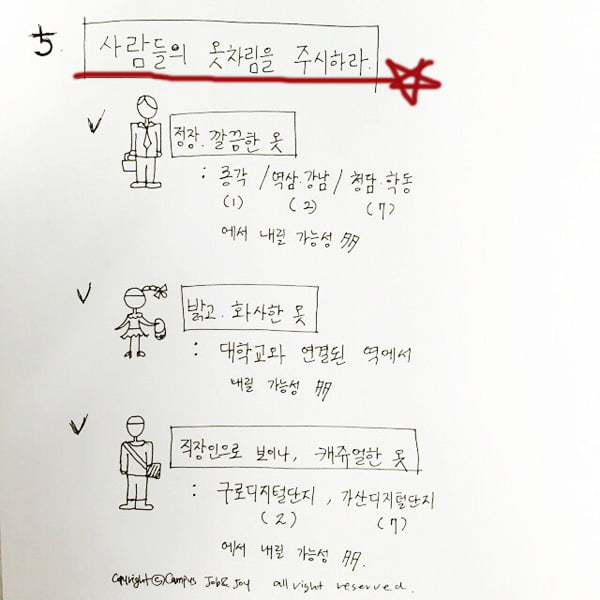 5. 사람들의 옷차림을 주시하라.
정장. 깔끔한 옷
: 종각 / 역삼. 강남 / 청담. 학동
(1) (2) (7)
에서 내릴 가능성 多
밝고. 화사한 옷
: 대학교와 연결된 역에서
내릴 가능성 多
직장인으로 보이나, 캐쥬얼한 옷
: 구로디지털단지, 가산디지털단지
(2) (7)
에서 내릴 가능성 多.
Copyright ⓒ Campus Job & Joy all right reserved.